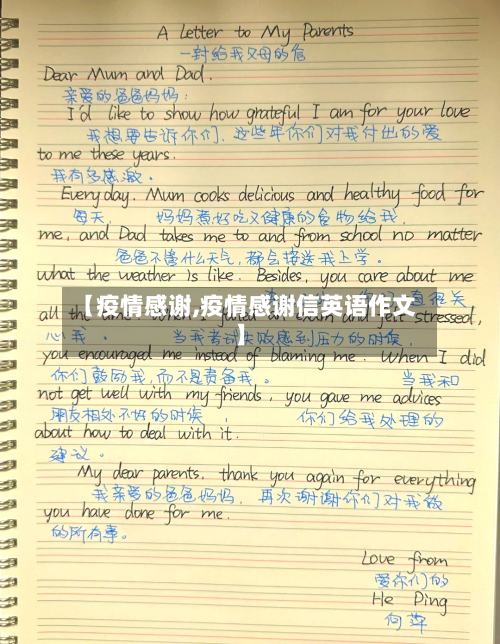 A Letter to My Parents
一封给我父母的信
Dear Mum and Dad.
亲爱的爸爸妈妈:
I'd like to show how grateful I am for your love
我想要告诉你们,这些年你们对我付出的爱
to me these years.
我有多感激。
Everyday. Mum cooks delicious and healthy food for
每天, 妈妈煮好吃又健康的食物给我,
me, and Dad takes me to and from school no matter
爸爸不管什么天气,都会接送我上学。
what the weather is like. Besides, you care about me
很关
【疫情感谢,疫情感谢信英语作文】
all the time. When I failed an exam and felt stressed,
心我。 当我考试失败感到压力的时候,
you encouraged me instead of blaming me. When I did
你们鼓励我,而不是责备我。 当我和
not get well with my friends, you gave me advices
朋友相处不好的时候, 你们给我处理的
about how to deal with it.
建议。
My dear parents, thank you again for everything
我亲爱的爸爸妈妈,再次谢谢你们对我做
you have done for me.
的所有事。
Love from
爱你们的
He Ping
何萍